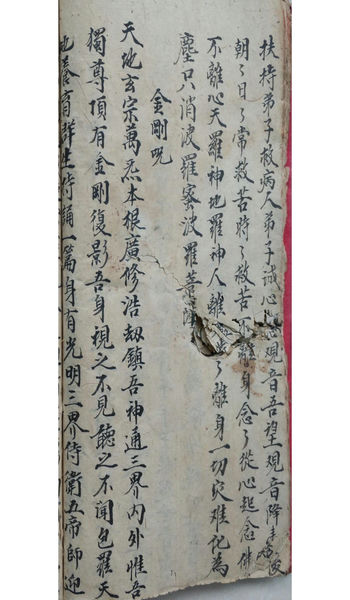 扶持弟子救病人弟子诚心念观音吾望观音降
朝〻日〻常救苦时〻救苦不离身念〻從心起念佛
不離心天羅神地羅神人離難〻離身一切灾难化為
塵只消波羅蜜波羅菩
金剛咒
天地玄宗萬炁本根廣修浩劫鎮吾神通三界内外惟吾
獨尊頂有金剛復影吾身視之不見聽之不聞包羅天
地養育群生侍誦一篇身有光明三界侍衛五帝師迎